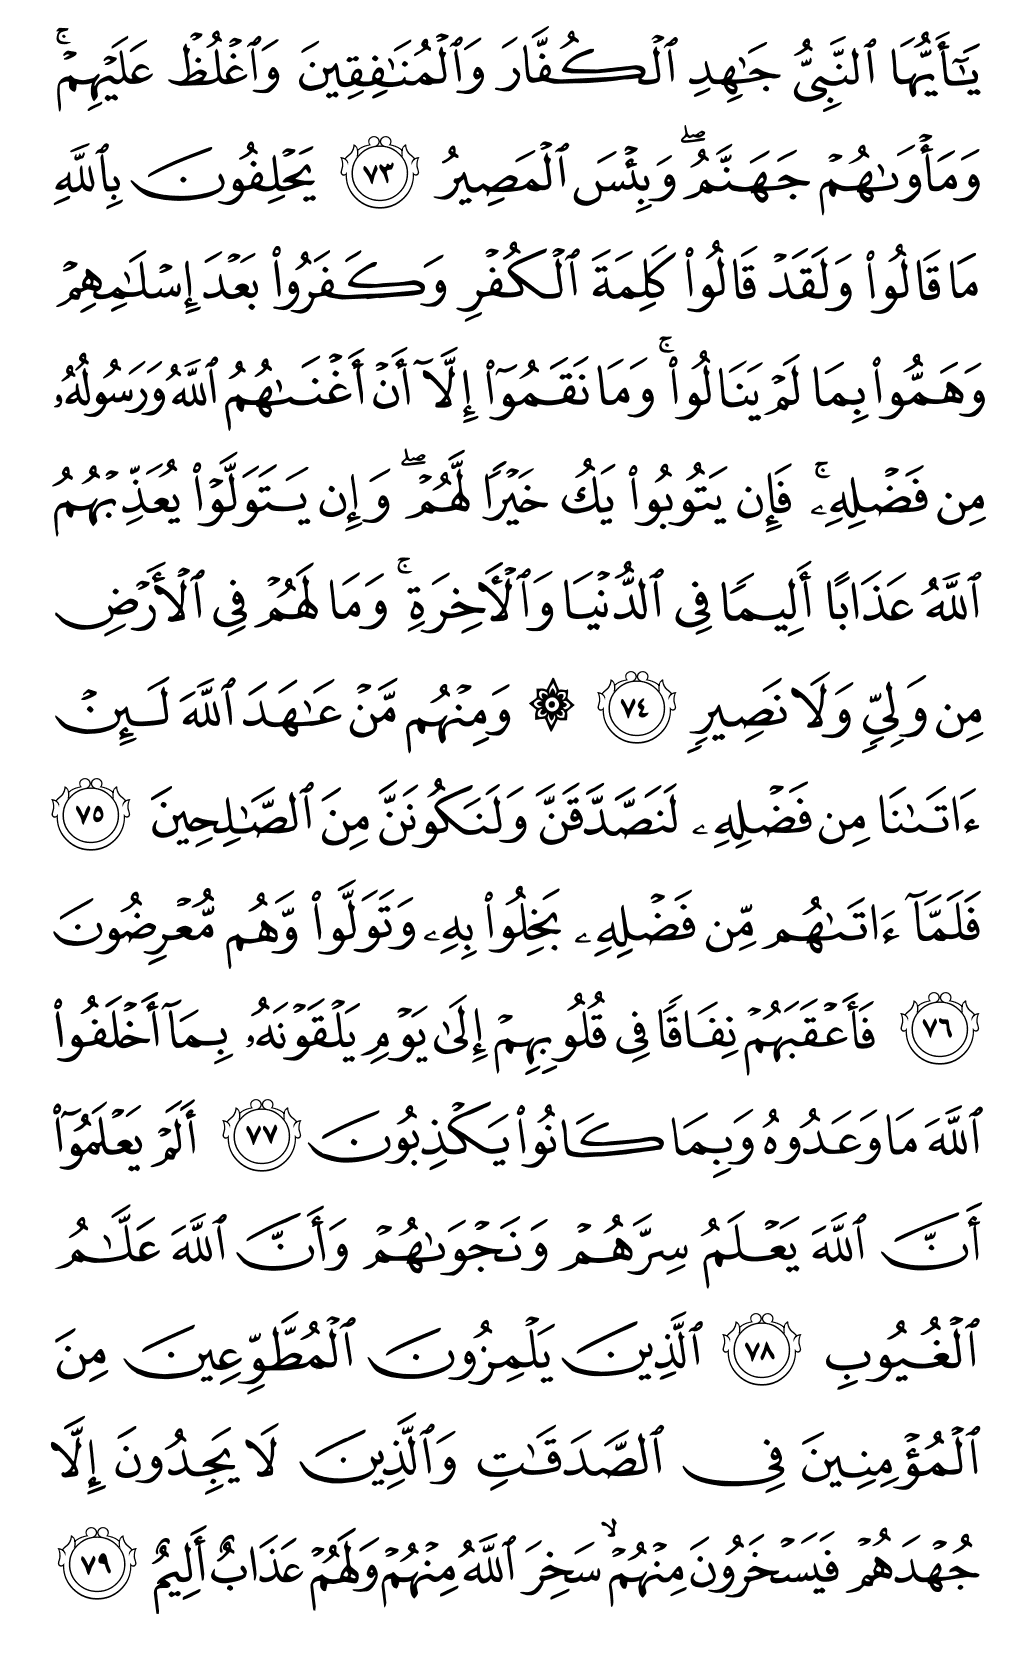 يَٰٓأَيُّهَا ٱلنَّبِىُّ جَٰهِدِ ٱلْكُفَّارَ وَٱلْمُنَٰفِقِينَ وَٱغْلُظْ عَلَيْهِمْ ۚ
وَمَأْوَىٰهُمْ جَهَنَّمُ ۖ وَبِئْسَ ٱلْمَصِيرُ ٧٣ يَحْلِفُونَ بِٱللَّهِ
مَا قَالُوا۟ وَلَقَدْ قَالُوا۟ كَلِمَةَ ٱلْكُفْرِ وَكَفَرُوا۟ بَعْدَ إِسْلَٰمِهِمْ
وَهَمُّوا۟ بِمَا لَمْ يَنَالُوا۟ ۚ وَمَا نَقَمُوٓا۟ إِلَّآ أَنْ أَغْنَىٰهُمُ ٱللَّهُ وَرَسُولُهُۥ
مِن فَضْلِهِۦ ۚ فَإِن يَتُوبُوا۟ يَكُ خَيْرًا لَّهُمْ ۖ وَإِن يَتَوَلَّوْا۟ يُعَذِّبْهُمُ
ٱللَّهُ عَذَابًا أَلِيمًا فِى ٱلدُّنْيَا وَٱلْـَٔاخِرَةِ ۚ وَمَا لَهُمْ فِى ٱلْأَرْضِ
مِن وَلِىٍّ وَلَا نَصِيرٍ ٧٤ ۞ وَمِنْهُم مَّنْ عَٰهَدَ ٱللَّهَ لَئِنْ
ءَاتَىٰنَا مِن فَضْلِهِۦ لَنَصَّدَّقَنَّ وَلَنَكُونَنَّ مِنَ ٱلصَّٰلِحِينَ ٧٥
فَلَمَّآ ءَاتَىٰهُم مِّن فَضْلِهِۦ بَخِلُوا۟ بِهِۦ وَتَوَلَّوا۟ وَّهُم مُّعْرِضُونَ
٧٦ فَأَعْقَبَهُمْ نِفَاقًا فِى قُلُوبِهِمْ إِلَىٰ يَوْمِ يَلْقَوْنَهُۥ بِمَآ أَخْلَفُوا۟
ٱللَّهَ مَا وَعَدُوهُ وَبِمَا كَانُوا۟ يَكْذِبُونَ ٧٧ أَلَمْ يَعْلَمُوٓا۟
أَنَّ ٱللَّهَ يَعْلَمُ سِرَّهُمْ وَنَجْوَىٰهُمْ وَأَنَّ ٱللَّهَ عَلَّٰمُ
ٱلْغُيُوبِ ٧٨ ٱلَّذِينَ يَلْمِزُونَ ٱلْمُطَّوِّعِينَ مِنَ
ٱلْمُؤْمِنِينَ فِى ٱلصَّدَقَٰتِ وَٱلَّذِينَ لَا يَجِدُونَ إِلَّا
جُهْدَهُمْ فَيَسْخَرُونَ مِنْهُمْ ۙ سَخِرَ ٱللَّهُ مِنْهُمْ وَلَهُمْ عَذَابٌ أَلِيمٌ ٧٩